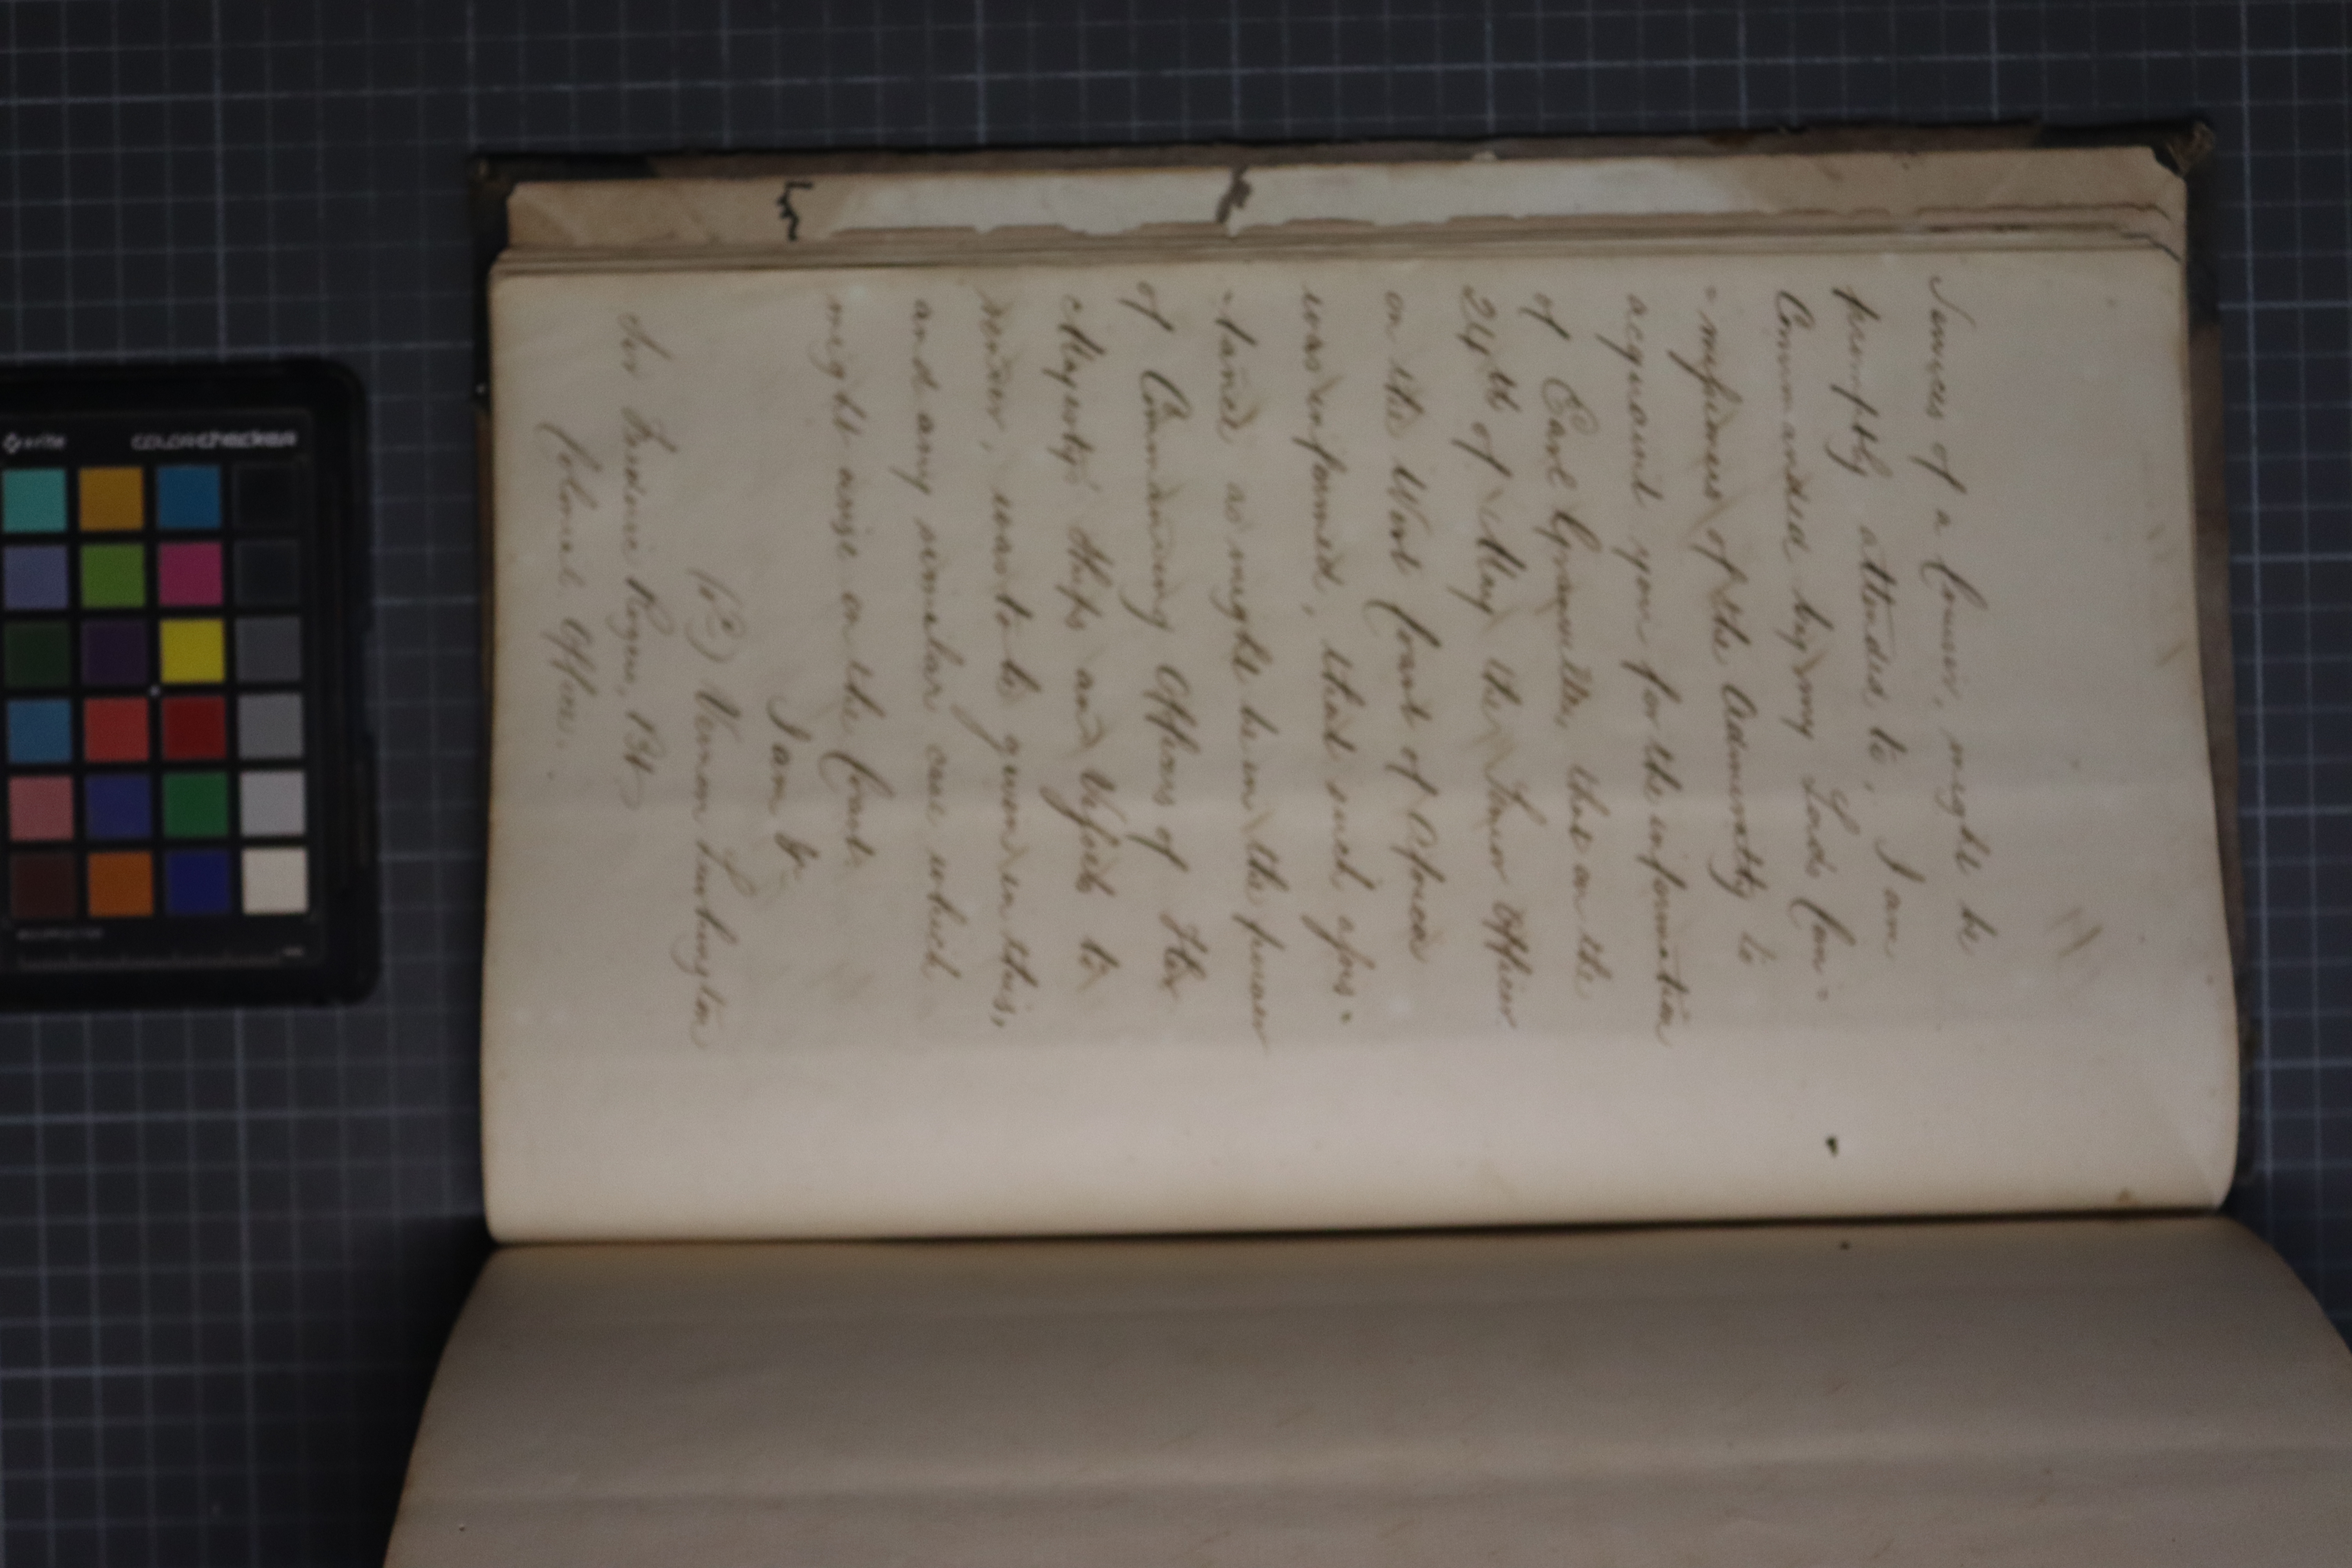 Services of a Cruiser, might be
promptly attended to, I am
Commanded by my Lords Com=
=missioners of the Admiralty to
acquaint you for the information
of Earl Granville, that on the
24th of May the Senior Officer
on the West Coast of Africa
was informed, that such assis=
=tance as might be in the power
of Commanding Officers of Her
Majesty's Ships and Vessels to
render, was to be given in this,
and any similar case which
might arise on the Coast.
I am &c
Vernon Lushington
Sir Frederic Rogers, Bt
Colonial Office.
x-rite
colorchecker